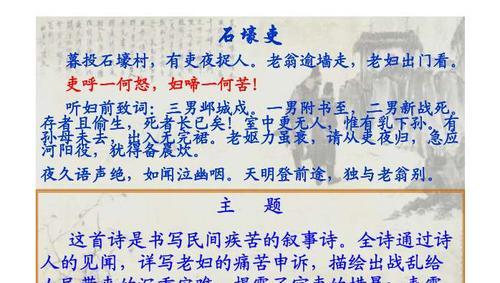 石壕吏
暮投石壕村，有吏夜捉人。老翁逾墙走，老妇出门看。
吏呼一何怒，妇啼一何苦！
听妇前致词：三男邺城戍。一男附书至，二男新战死。
存者且偷生，死者长已矣！室中更无人，惟有乳下孙。有
孙母未去，出入无完裙。老妪力虽衰，请从吏夜归，急应
河阳役，犹得备晨炊。
夜久语声绝，如闻泣幽咽。天明登前途，独与老翁别。
主 题
这首诗是书写民间疾苦的叙事诗。全诗通过诗
人的见闻，详写老妇的痛苦申诉，描绘出战乱给